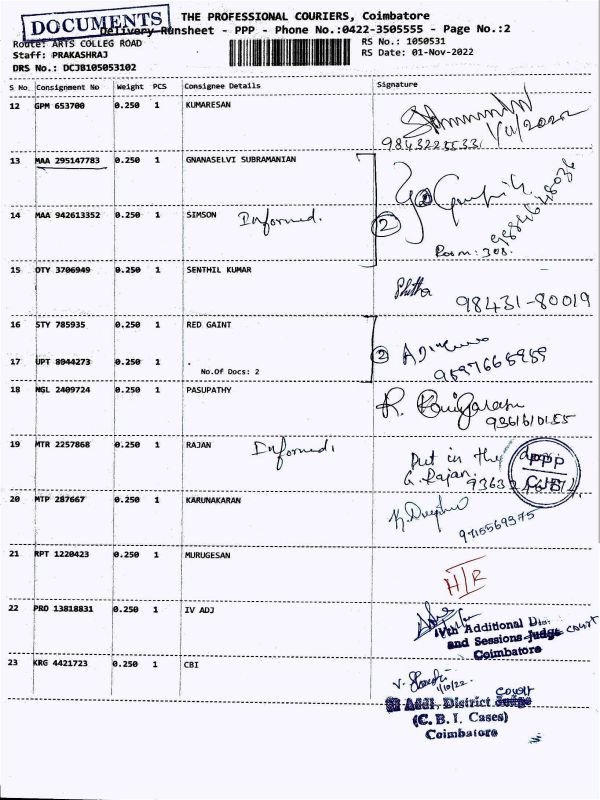 DOCUMENTS
THE PROFESSIONAL COURIERS, Coimbatore
Delivery Runsheet - PPP - Phone No.:0422-3505555 - Page No.:2
Route: ARTS COLLEG ROAD
RS No.: 1050531
Staff: PRAKASHRAJ
RS Date: 01-Nov-2022
DRS No.: DCJB105053102
S No. Consignment No Weight PCS Consignee Details Signature
12 GPM 653700 0.250 1 KUMARESAN
9843225533
13 MAA 295147783 0.250 1 GNANASELVI SUBRAMANIAN
14 MAA 942613352 0.250 1 SIMSON Informed. 2
Room: 308.
15 OTY 3706949 0.250 1 SENTHIL KUMAR
98431-80019
16 STY 785935 0.250 1 RED GAINT
17 UPT 8944273 0.250 1 . 2
No.Of Docs: 2
9597665959
18 NGL 2409724 0.250 1 PASUPATHY
9361610155
19 MTR 2257868 0.250 1 RAJAN Informed.
Put in the door
G. Rajan.
PPP
CJB
20 MTP 287667 0.250 1 KARUNAKARAN
9715569375
21 RPT 1220423 0.250 1 MURUGESAN
22 PRO 13818831 0.250 1 IV ADJ
IVth Additional Dist
and Sessions Judge court
Coimbatore
23 KRG 4421723 0.250 1 CBI
1/10/22.
court
II Addl. District Judge
(C. B. I. Cases)
Coimbatore